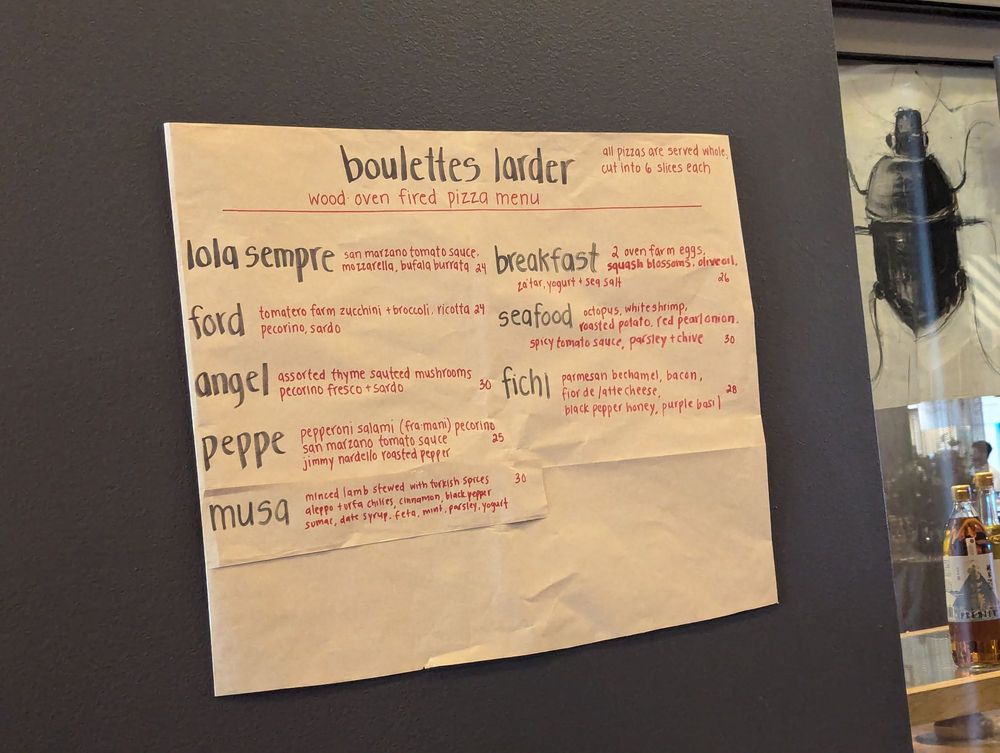 boulettes larder
all pizzas are served whole.
cut into 6 slices each
wood oven fired pizza menu
lola sempre san marzano tomato sauce,
mozzarella, bufala burrata 24
ford tomatero farm zucchini + broccoli, ricotta 24
pecorino, sardo
angel assorted thyme sauteed mushrooms
pecorino fresco + sardo 30
peppe pepperoni salami (fra·mani) pecorino
san marzano tomato sauce 25
jimmy nardello roasted pepper
musa minced lamb stewed with turkish spices 30
aleppo + urfa chilies, cinnamon, black pepper
sumac, date syrup, feta, mint, parsley, yogurt
breakfast 2 oven farm eggs,
squash blossoms, olive oil,
za'tar, yogurt + sea salt 26
seafood octopus, white shrimp,
roasted potato, red pearl onion,
spicy tomato sauce, parsley + chive 30
fichi parmesan bechamel, bacon,
fior de latte cheese, 28
black pepper honey, purple basil